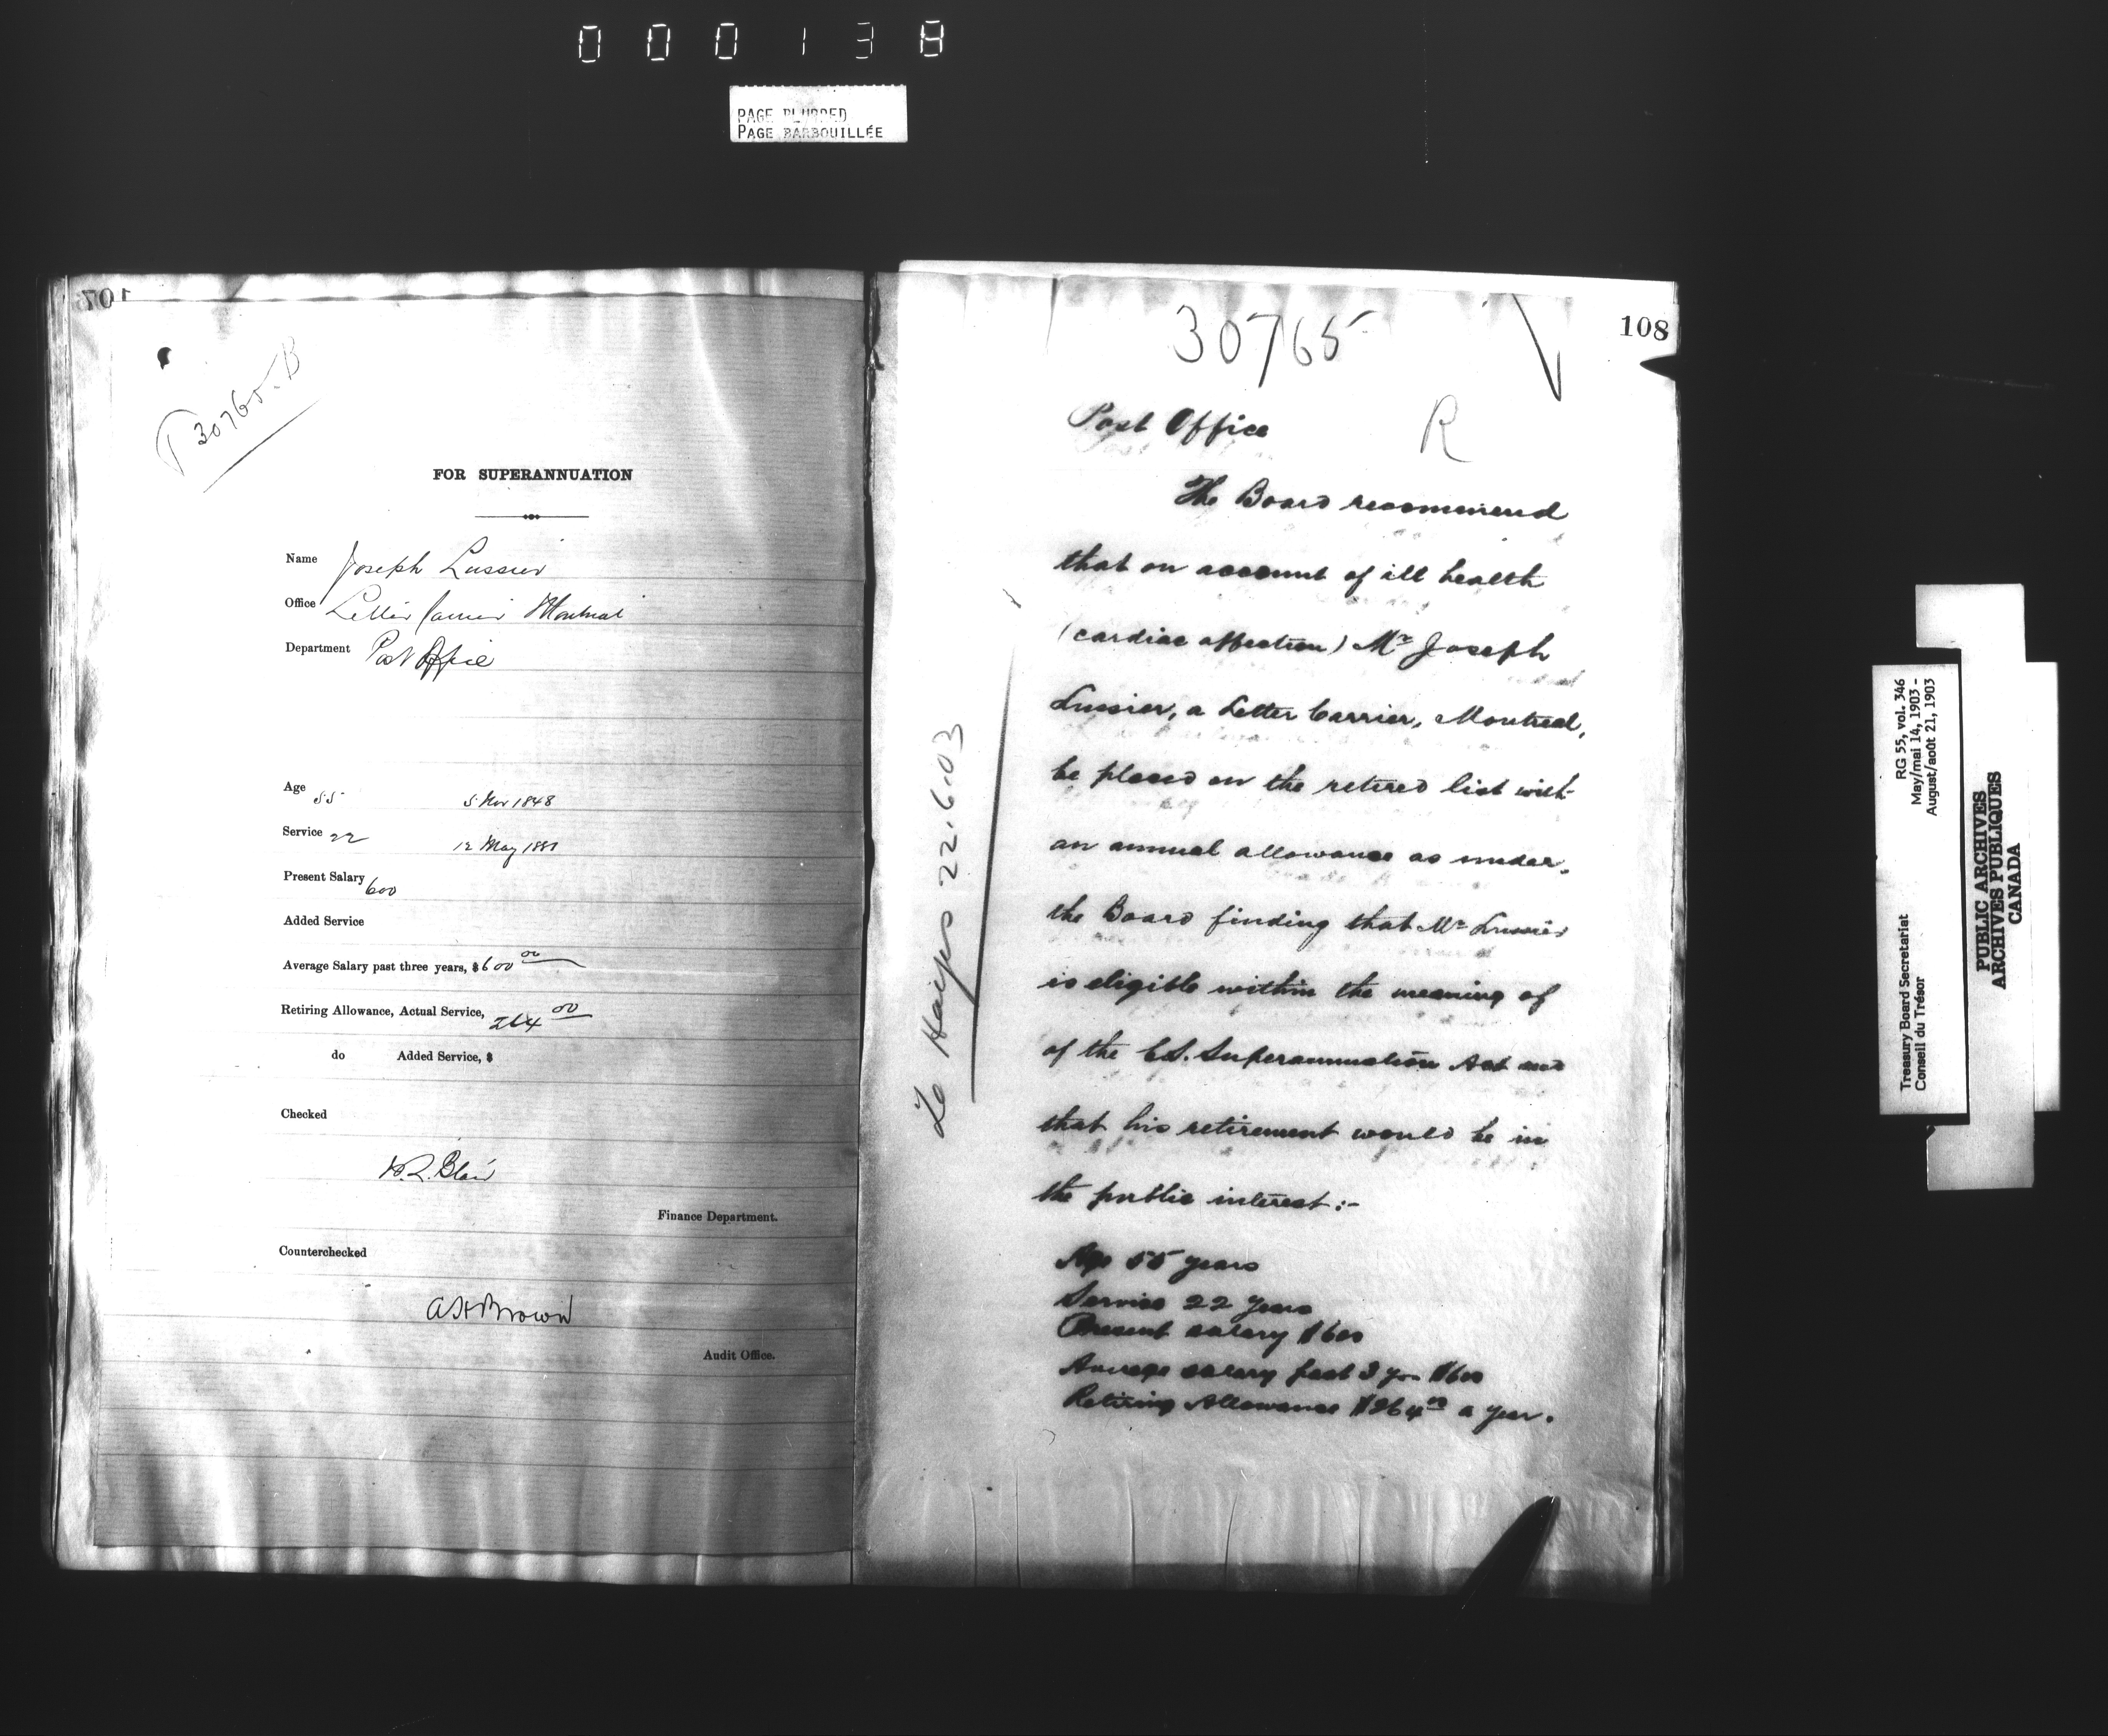 000138
PAGE BLURRED
PAGE BARBOUILLÉE
107
T 30765-B
FOR SUPERANNUATION
Name Joseph Lussier
Office Letter Carrier Montreal
Department Post Office
Age 55 5 Nov 1848
Service 22 12 May 1881
Present Salary 600
Added Service
Average Salary past three years, $600 00
Retiring Allowance, Actual Service, 264 00
do Added Service, $
Checked
Blair
Finance Department.
Counterchecked
A H Brown
Audit Office.
108
30765
Post Office R
The Board recommend
that on account of ill health
(cardiac affection) Mr Joseph
Lussier, a Letter Carrier, Montreal,
be placed on the retired list with
an annual allowance as under,
the Board finding that Mr Lussier
is eligible within the meaning of
of the C.S. Superannuation Act and
that his retirement would be in
the public interest:-
Age 55 years
Service 22 years
Present salary $600
Average salary past 3 yrs $600
Retiring Allowance $264 00 a year.
22.6.03
Treasury Board Secretariat RG 55, vol. 346
Conseil du Trésor May/mai 14, 1903 -
August/août 21, 1903
PUBLIC ARCHIVES
ARCHIVES PUBLIQUES
CANADA